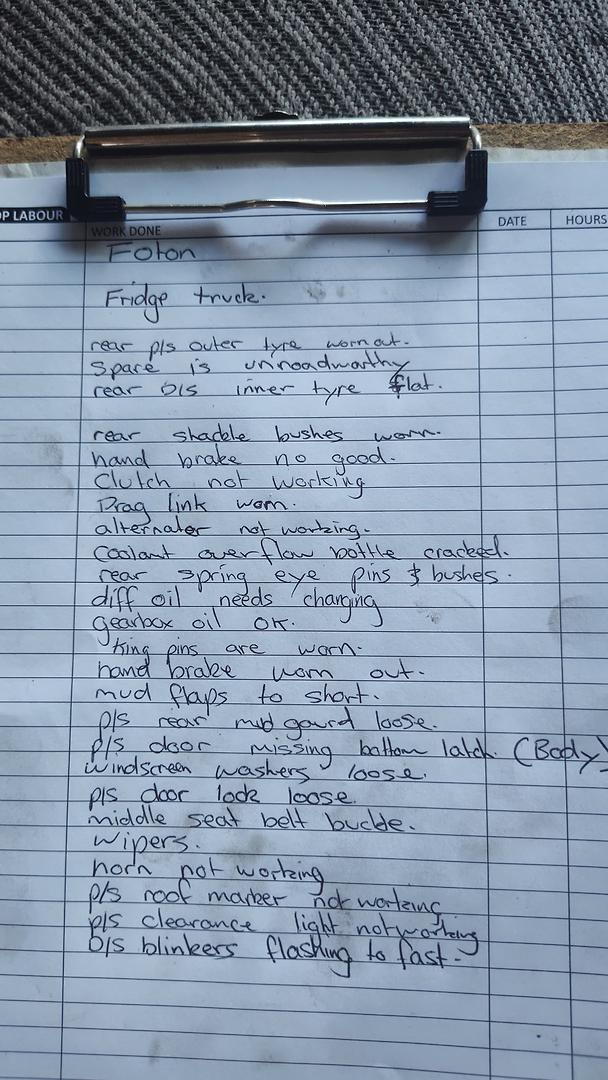 OP LABOUR
WORK DONE
DATE
HOURS
Foton
Fridge truck.
rear p/s outer tyre wornout.
Spare is unroadworthy
rear D/s inner tyre flat.
rear shackle bushes worn.
hand brake no good.
Clutch not working
Drag link worn.
alternater not working.
Coolant overflow bottle cracked.
rear spring eye pins & bushes.
diff oil needs changing
gearbox oil OK.
King pins are worn.
hand brake worn out.
mud flaps to short.
p/s rear mud gourd loose.
p/s door missing bottom latch. (Body)
windscreen washers loose.
p/s door lock loose.
middle seat belt buckle.
wipers.
horn not working
p/s roof marker not working
p/s clearance light not working
D/s blinkers flashing to fast.